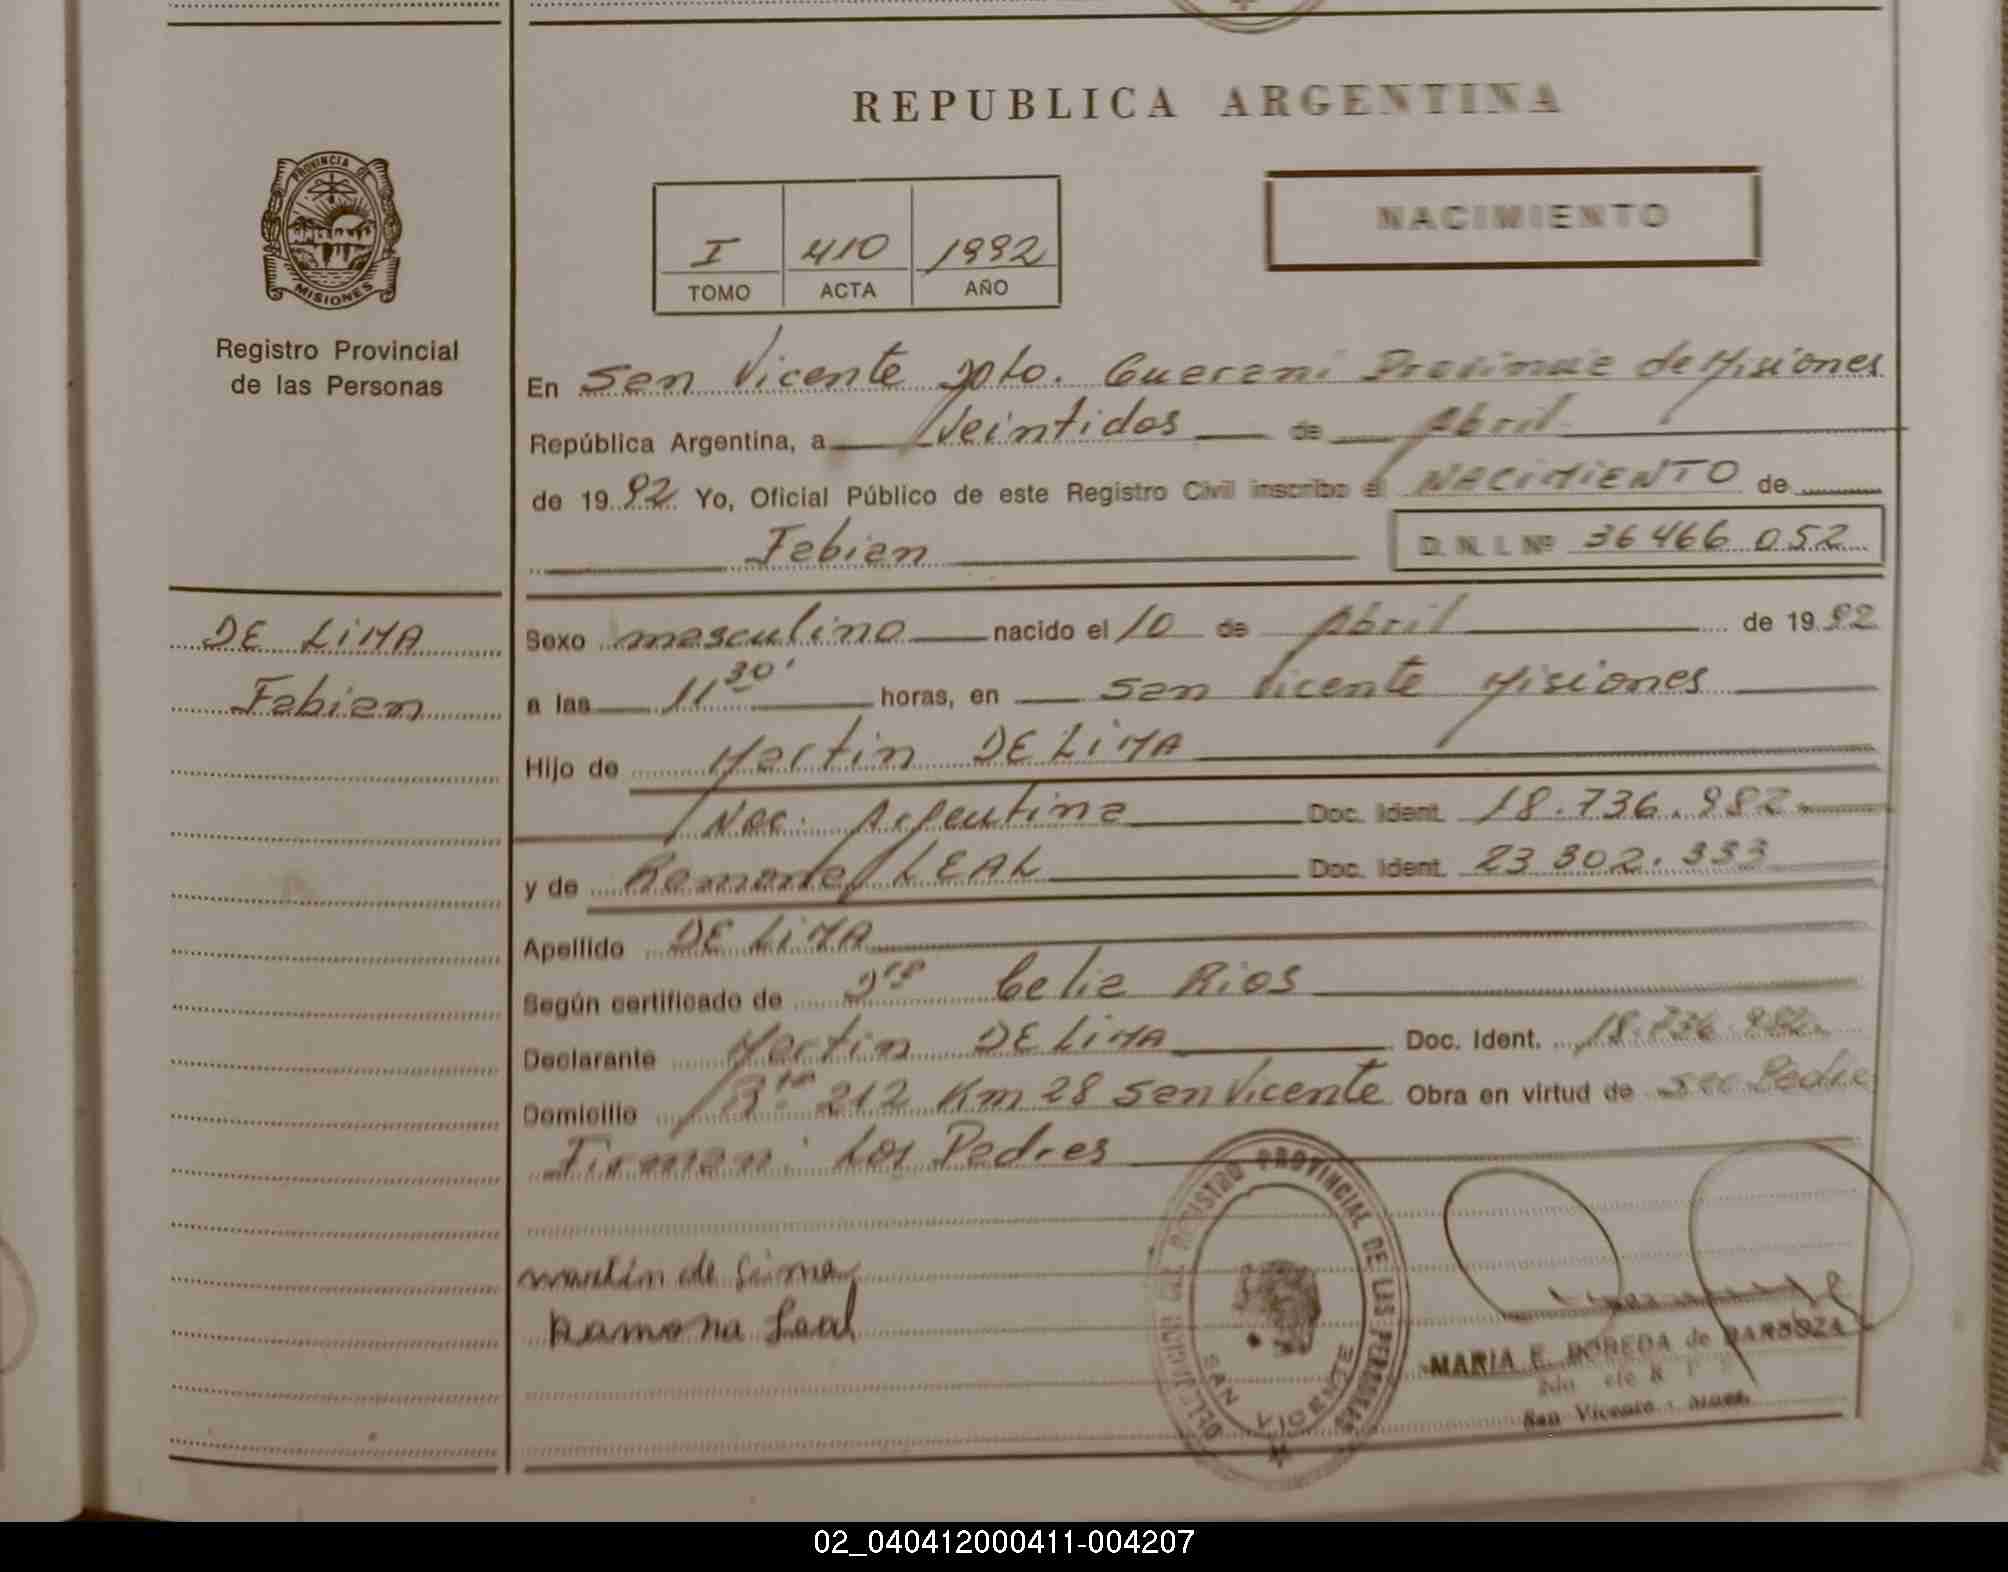 REPUBLICA ARGENTINA
PROVINCIA DE
MISIONES
Registro Provincial
de las Personas
I 410 1992
TOMO ACTA AÑO
NACIMIENTO
En San Vicente Dpto. Guarani Provincia de Misiones
República Argentina, a Veintidos de Abril
de 1992 Yo, Oficial Público de este Registro Civil inscribo el NACIMIENTO de
Fabian
D. N. I. Nº 36466 052
DE LIMA
Fabian
Sexo masculino nacido el 10 de Abril de 1992
a las 11 30' horas, en San Vicente Misiones
Hijo de Martin DE LIMA
Nac. Argentina Doc. Ident. 18.736.982
y de Ramona LEAL Doc. Ident. 23 802. 333
Apellido DE LIMA
Según certificado de Dra Celia Rios
Declarante Martin DE LIMA Doc. Ident. 18.736.982
Domicilio 212 Km 28 San Vicente Obra en virtud de ser Padre
Firman: Los Padres
martin de Lima
Ramona Leal
REGISTRO PROVINCIAL DE LAS PERSONAS
SAN VICENTE
MARIA E. de BARBOZA
San Vicente - Mnes.
02_040412000411-004207